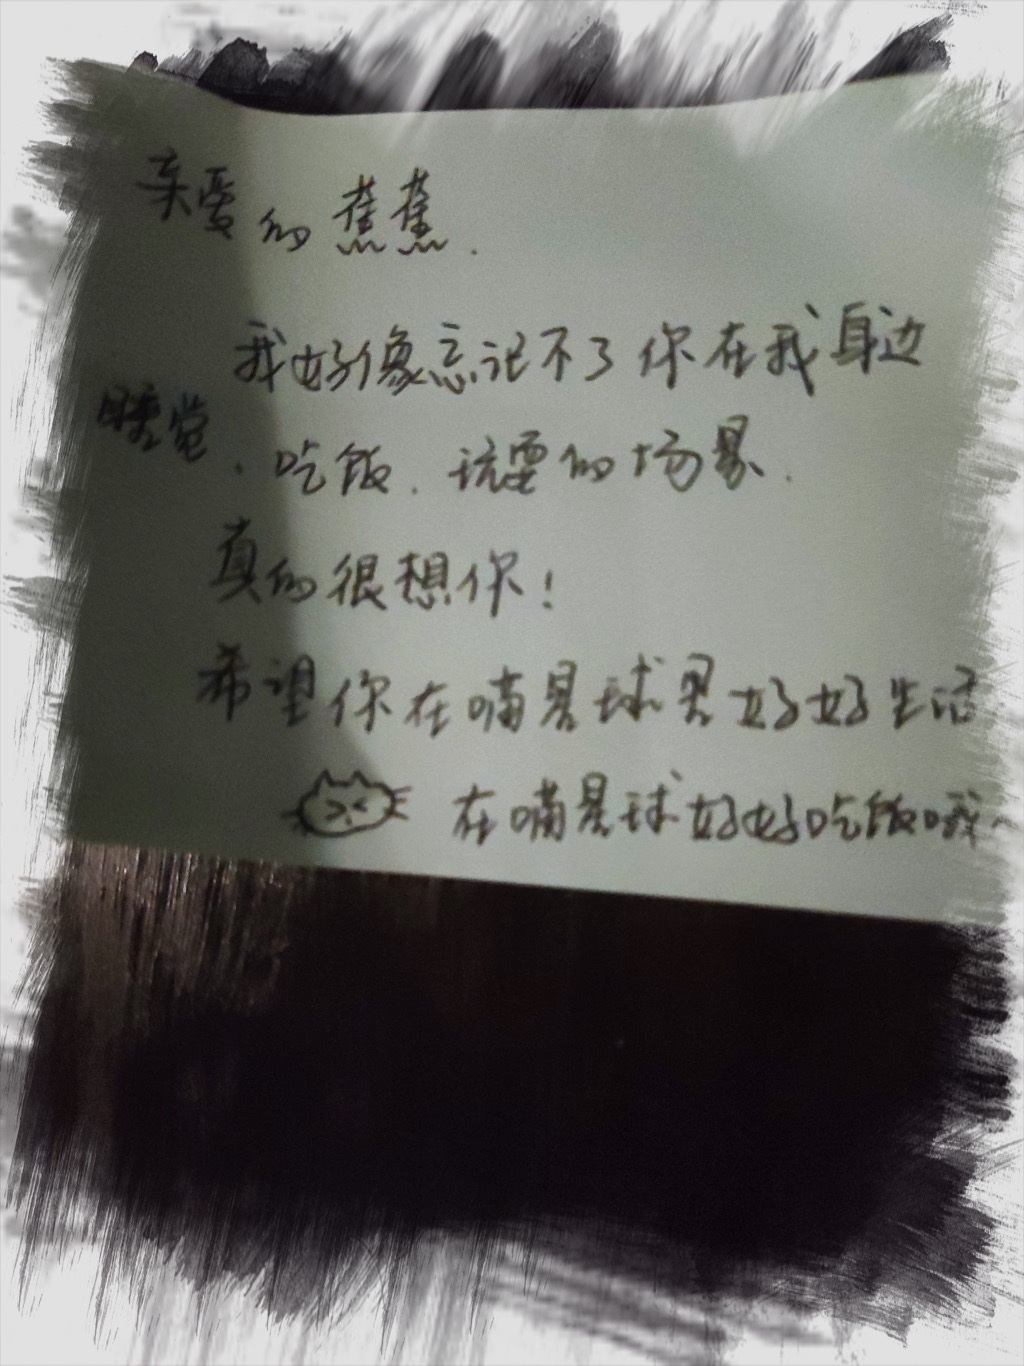 亲爱的蕉蕉.
我好像忘记不了你在我身边
睡觉、吃饭、玩耍的场景.
真的很想你!
希望你在喵星球里好好生活
在喵星球好好吃饭哦~